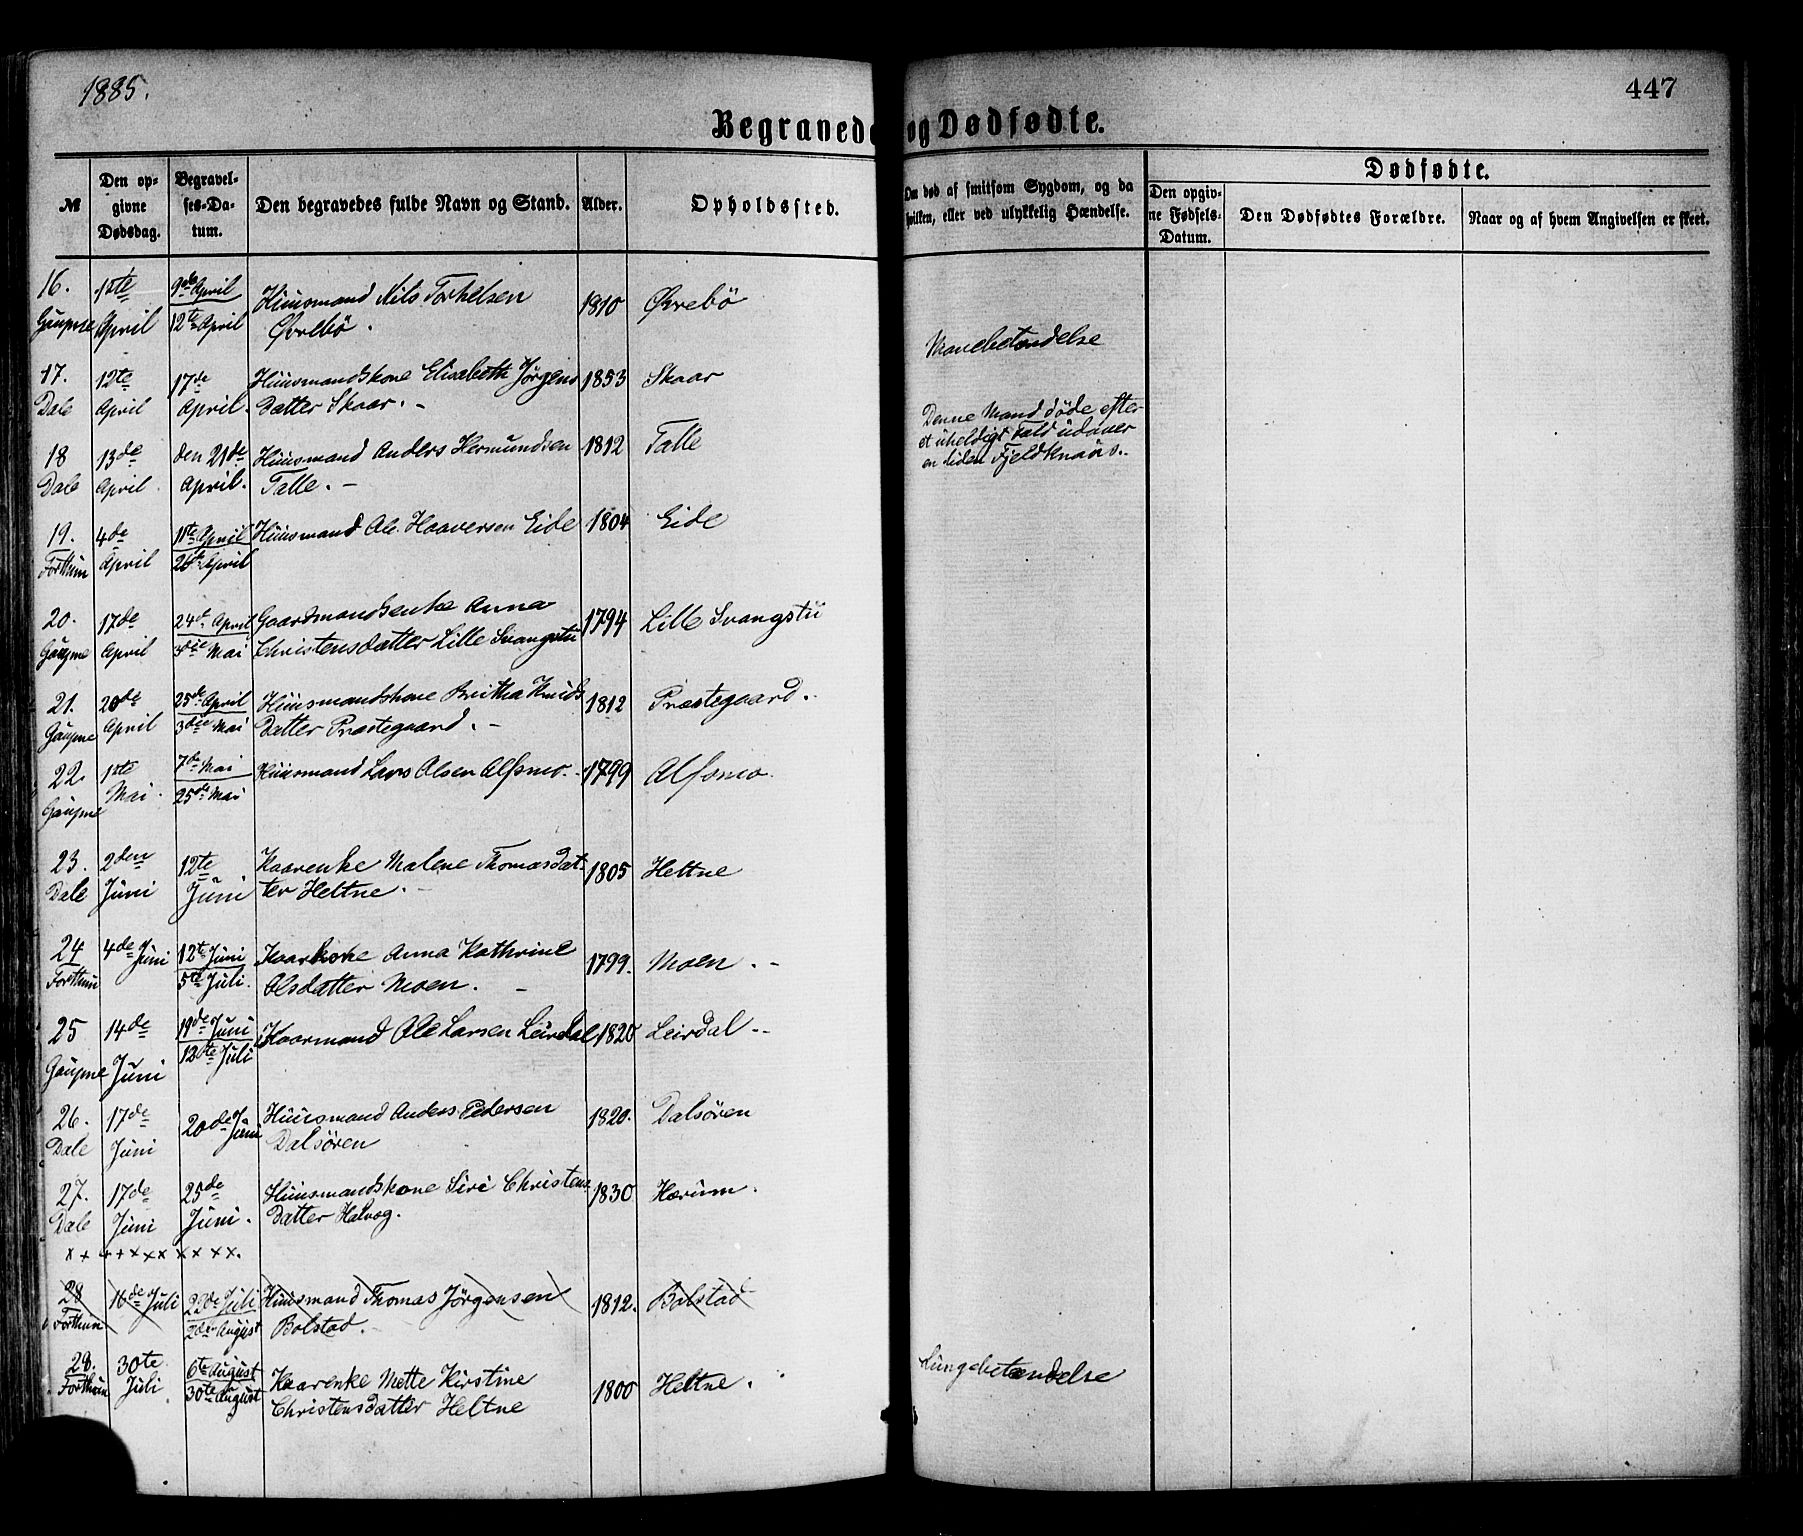 1885.
447
Begravede og Dødfødte.
№
Den op-
givne
Dødsdag.
Begravel-
ses-Da-
tum.
Den begravedes fulde Navn og Stand.
Alder.
Opholdssted.
Om død af smitsom Sygdom, og da
hvilken, eller ved ulykkelig Hændelse.
Dødfødte.
Den opgiv-
ne Fødsels-
Datum.
Den Dødfødtes Forældre.
Naar og af hvem Angivelsen er skeet.
16. 1ste 9de April Huusmand Nils Torkelsen 1810 Øvrebö
Gaupne April 12te April Øvrebö.
Mavebetændelse
17. 12te 17de Huusmandskone Elisabeth Jørgens 1853 Skaar
Dale April April. Datter Skaar. -
Denne Mand döde efter
et uheldigt Fald udover
en liden Fjeldknaus..
18 13de den 21de Huusmand Anders Hermundsen 1812 Talle
Dale April. April. Talle. -
19. 4de 11te April Huusmand Ole Haaversen Eide 1804 Eide
Forthun April 26te April
20. 17de 24de April Gaardmandsenke Anna 1794 Lille Svangstu
Gaupne April 3die Mai Christensdatter Lille Svangstu
21. 20de 25de April Huusmandskone Britha Knuds 1812 Præstegaard.
Gaupne April 3die Mai Datter Præstegaard. -
22. 1ste 7de Mai Huusmand Lars Olsen Alfsmo. 1799 Alfsmo.
Gaupne Mai. 25de Mai
23. 2den 12te Kaarenke Malene Thomasdat- 1805 Heltne
Dale Juni Juni ter Heltne. -
24 4de Juni 12te Juni Kaarkone Anna Kathrine 1799. Moen. -
Forthun 5te Juli. Olsdatter Moen. -
25 14de 19de Juni Kaarmand Ole Larsen Leirdal 1820 Leirdal -
Gaupne Juni 12te Juli
26. 17de 20de Juni Huusmand Anders Pedersen 1820. Dalsören
Dale Juni Dalsören
27. 17de 25de Huusmandskone Siri Christens 1830 Hærum.
Dale Juni Juni. Datter Halvog.
x + + + x x x x x x x.
28 16de Juli 22de Juli Huusmand Thomas Jörgensen 1812. Bolstad
Forthun 2den August Bolstad.
28. 30te 6te August Kaarenke Mette Kirstine 1800 Heltne.
Forthun Juli. 30te August Christensdatter Heltne
Lungebetændelse